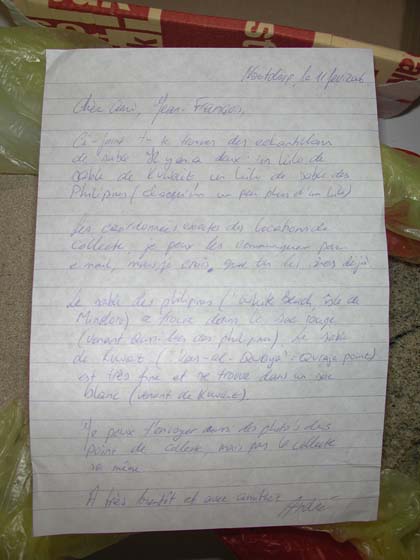 le 11
Cher ami, Jean-François,
Ci-joint tu trouves des echantillons
de sable. Il y en a deux: un kilo de
sable de Kuwait un kilo de sable des
Philipines ( un peu plus d'un kilo)
Les coordonnées exactes des locations de
collecte, je peux les communiquer par
e-mail, mais je crois que tu les as déjà
Le sable des philipines (White Beach, isle de
Mindoro) se trouve dans le sac rouge
(venant aussi des philipines). Le sable
de Kuwait ("Ras-al-
est très fine et se trouve dans un sac
blanc (venant de Kuwait).
Je peux t'envoyer aussi des photo's des
point de collecte, mais pas la collecte
même.
A très bientôt et avec amitiés
André